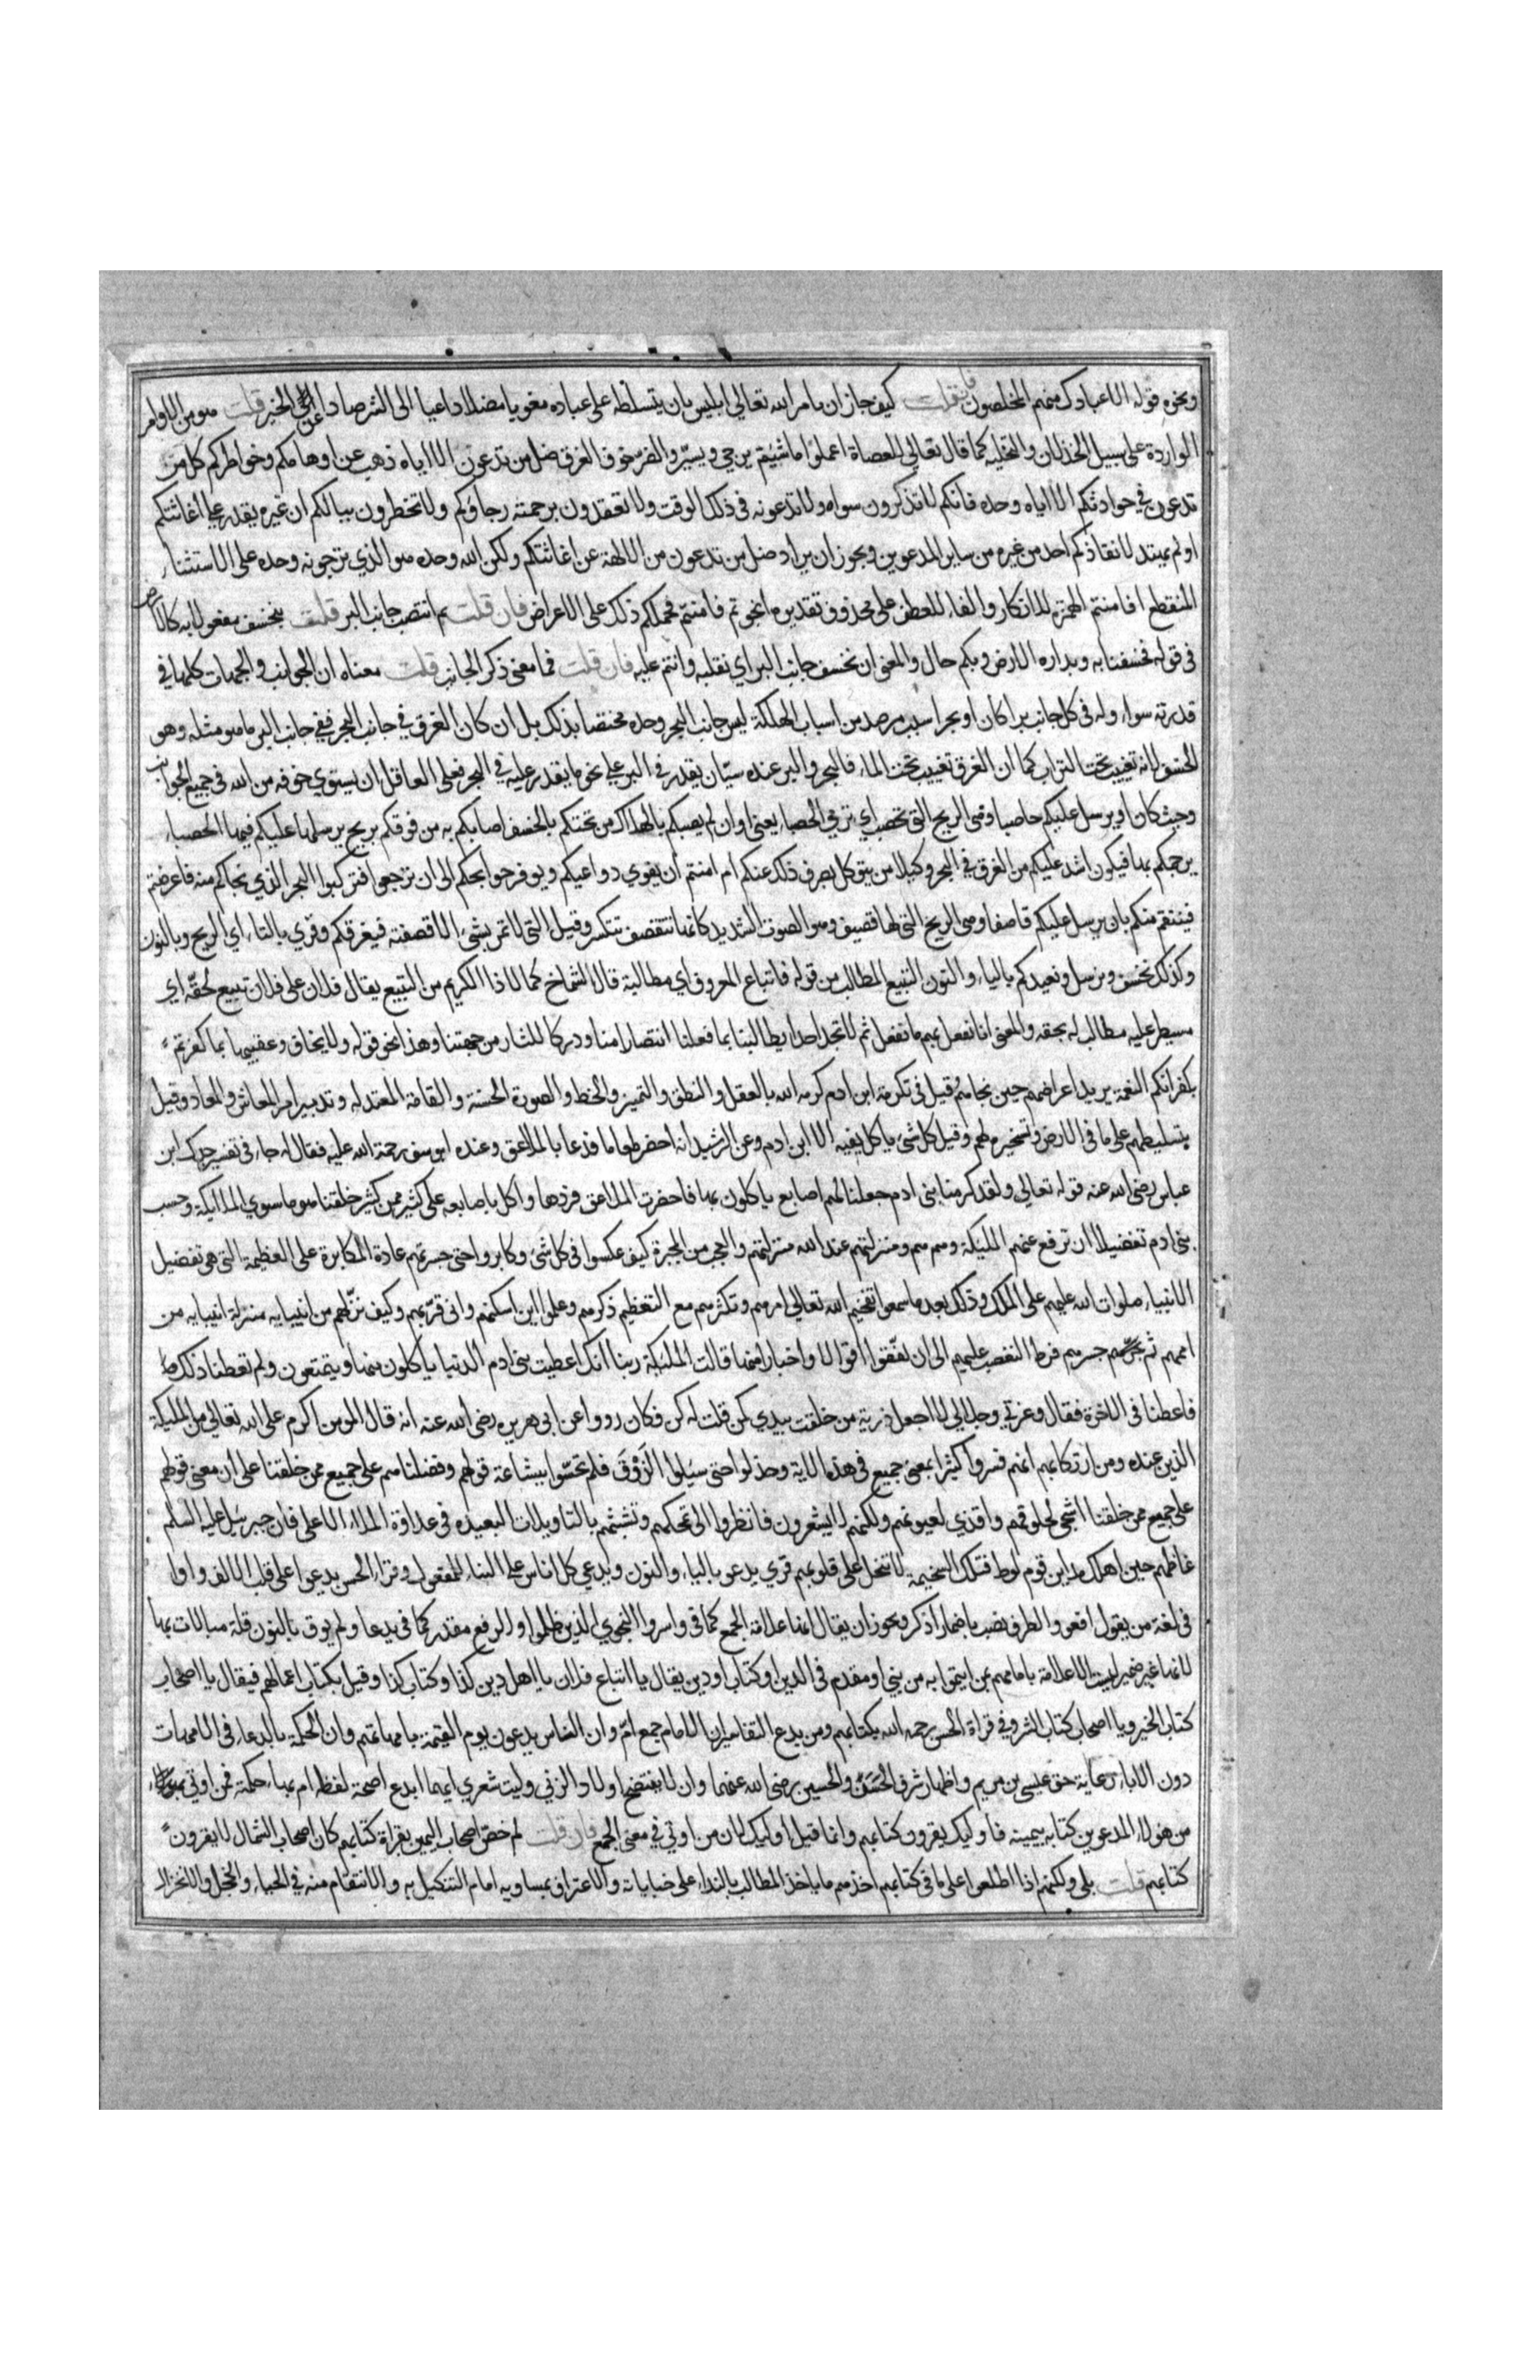 ونحوه قوله الا عبادك منهم المخلصون فان قلت كيف جاز ان يامر الله تعالى ابليس بان يتسلط على عباده مغويا مضلا داعيا الى الشر صادا عن الخير قلت هو من الاوامر
الواردة على سبيل الخذلان والتخلية كما قال تعالى للعصاة اعملوا ما شئتم يزجي ويسير والضر خوف الغرق ضل من تدعون الا اياه ذهب عن اوهامكم وخواطركم كل من
تدعون في حوادثكم الا اياه وحده فانكم لا تذكرون سواه ولا تدعونه في ذلك الوقت ولا تعقدون برحمته رجاؤكم ولا تخطرون ببالكم ان غيره يقدر على اغاثتكم
او لم يهتد لانقاذكم احد من غيره من ساير المدعوين ويجوز ان يراد ضل من تدعون من الالهة عن اغاثتكم ولكن الله وحده هو الذي ترجونه وحده على الاستثناء
المنقطع افامنتم الهمزة للانكار والفاء للعطف على محذوف تقديره انجوتم فامنتم فحملكم ذلك على الاعراض فان قلت بم انتصب جانب البر قلت بنخسف مفعولا به كالارض
في قوله فخسفنا به وبداره الارض وبكم حال والمعنى ان نخسف جانب البر اي نقلبه وانتم عليه فان قلت فما معنى ذكر الجانب قلت معناه ان الجوانب والجهات كلها في
قدرته سواء وله في كل جانب برا كان او بحرا سبب مرصد من اسباب الهلكة ليس جانب البحر وحده مختصا بذلك بل ان كان الغرق في جانب البحر ففي جانب البر ما هو مثله وهو
الخسف لانه تغييب تحت التراب كما ان الغرق تغييب تحت الماء فالبحر والبر عنده سيّان يقدر في البر على نحو ما يقدر عليه في البحر فعلى العاقل ان يستوي خوفه من الله في جميع الجوانب
وحيث كان او يرسل عليكم حاصبا وهي الريح التي تحصب اي ترمي الحصباء يعني او ان لم يصبكم بالهلاك من تحتكم بالخسف اصابكم به من فوقكم بريح يرسلها عليكم فيها الحصباء
يرجمكم بها فيكون اشد عليكم من الغرق في البحر وكيلا من يتوكل بصرف ذلك عنكم ام امنتم ان يقوي دواعيكم ويوفر حوايجكم الى ان ترجعوا فتركبوا البحر الذي نجاكم منه فاعرضتم
فينتقم منكم بان يرسل عليكم قاصفا وهي الريح التي لها قصيف وهو الصوت الشديد كانها تتقصف تتكسر وقيل التي لا تمر بشيء الا قصفته فيغرقكم وقري بالتاء اي الريح وبالنون
وكذلك نخسف ونرسل ونعيدكم بالياء والنون التبيع المطالب من قوله فاتباع المعروف اي مطالبة قال الشماخ كما لاذا الكريم من التبيع يقال فلان على فلان تبيع لحقّه اي
مسيطر عليه مطالب له بحقه والمعنى انا نفعل بهم ما نفعل ثم لا تجد احدا يطالبنا بما فعلنا انتصارا منا ودركا للثار من جهتنا وهذا نحو قوله ولا يخاف وعقبيها بما كفرتم
بكفرانكم النعمة يريد اعراضهم حين نجاهم قيل في تكرمة ابن ادم كرمه الله بالعقل والنطق والتميز والخط والصورة الحسنة والقامة المعتدله وتدبير امر المعاش والمعاد وقيل
بتسليطهم على ما في الارض وتسخيره لهم وقيل كل شيء ياكل بفيه الا ابن ادم وعن الرشيد انه احضر طعاما فدعا بالملاعق وعنده ابو يوسف رحمة الله عليه فقال له جاء في تفسير جدك ابن
عباس رضي الله عنه قوله تعالى ولقد كرمنا بني ادم جعلنا لهم اصابع ياكلون بها فاحضرت الملاعق فردها واكل باصابعه على كثير ممن خلقنا هو ما سوي الملائكة وحسب
بني ادم تفضيلا ان ترفع عنهم المليكة وهم هم ومنزلتهم عند الله منزلتهم والعجب من المجبرة كيف عكسوا في كل شيء وكابروا حتى جسرتهم عادة المكابرة على العظيمة التي هي تفضيل
الانبياء صلوات الله عليهم على الملك وذلك بعد ما سمعوا تفخيم الله تعالى امرهم وتكثرهم مع التعظيم ذكرهم وعلموا اين اسكنهم وانى قرّبهم وكيف نزّلهم من انبيايه منزلة انبيايه من
اممهم ثم جرّهم فرط التعصب عليهم الى ان لفّقوا اقوالا واخبارا منها قالت المليكة ربنا انك اعطيت بني ادم الدنيا ياكلون منها ويتمتعون ولم تعطنا ذلك
فاعطنا في الاخرة فقال وعزتي وجلالي لا اجعل ذرية من خلقت بيدي كمن قلت له كن فكان ورووا عن ابي هريره رضي الله عنه انه قال المومن اكرم على الله تعالى من المليكة
الذين عنده ومن ارتكابهم انهم فسروا كثيرا بمعنى جميع في هذه الاية وخذلوا حتى سلبوا الذَوْقَ فلم يحسّوا ببشاعة قولهم وفضلناهم على جميع ممن خلقنا على ان معنى قولهم
على جميع ممن خلقنا اشجى لحلوقهم واقذي لعيونهم ولكنهم لا يشعرون فانظروا الى تمحكهم وتشبثهم بالتاويلات البعيده في عداوة الملاء الاعلى فان جبريل عليه السلم
غاظهم حين اهلك مداين قوم لوط فتلك السخيمة لا تنحل على قلوبهم قري يدعو بالياء والنون ويدعي كل اناس على البناء للمفعول وقراء الحسن يدعوا على قلب الالف واوا
في لغة من يقول افعو والظرف نصب باضمار اذكر ويجوز ان يقال انها علامة الجمع كما في واسروا النجوي الذين ظلموا والرفع مقدر كما في يدعا ولم يوت بالنون قلة مبالات بها
لانها غير ضمير ليست الا علامة بامامهم بمن ايتموا به من نبي او مقدم في الدين او كتاب او دين يقال يا اتباع فلان يا اهل دين كذا وكتاب كذا وقيل بكتاب اعمالهم فيقال يا اصحاب
كتاب الخير ويا اصحاب كتاب الشر وفي قراة الحسن رحمه الله بكتابهم ومن بدع التفاسير ان الامام جمع امّ وان الناس يدعون يوم القيمة بامهاتهم وان الحكمة بالدعاء في الامهات
دون الاباء رعاية حق عيسى بن مريم واظهار شرف الحسن والحسين رضي الله عنهما وان لا يفتضح اولاد الزنى وليت شعري ايهما ابدع اصحة لفظه ام بهاء حكمة فمن اوتي
من هؤلاء المدعوين كتابه بيمينه فاوليك يقرؤن كتابهم وانما قيل اوليك لان من اوتي في معنى الجمع فان قلت لم خصّ اصحاب اليمين بقراة كتابهم كان اصحاب الشمال لا يقرون
كتابهم قلت بلى ولكنهم اذا اطلعوا على ما في كتابهم اخذهم ما ياخذ المطالب بالنداء على خباياته والاعتراف بمساويه امام التنكيل به والانتقام منه في الحياء والخجل والانخزال